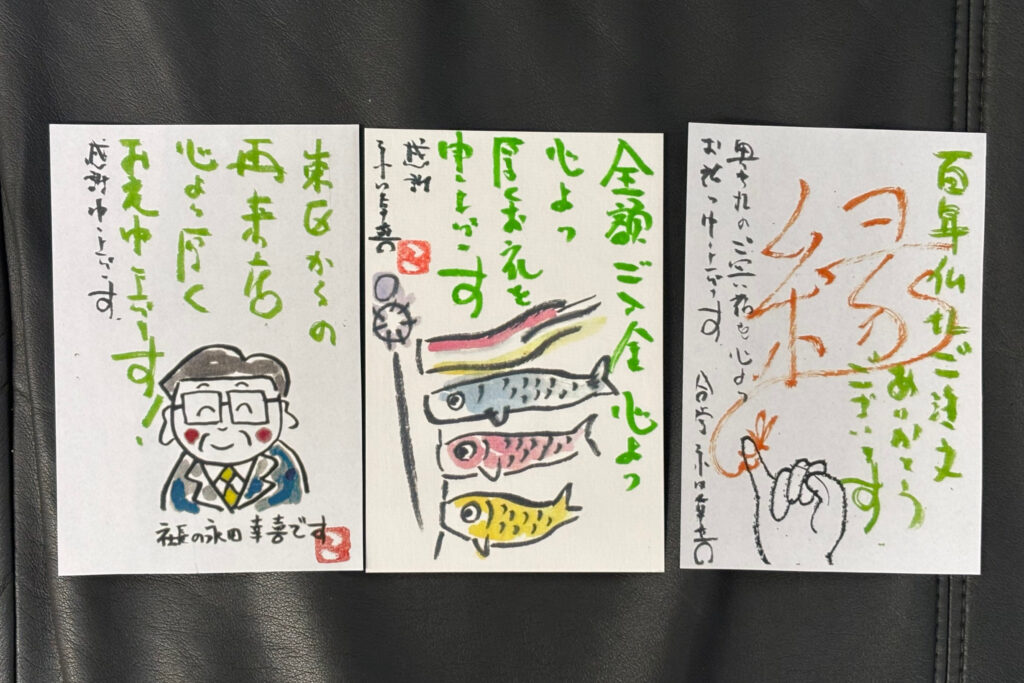 東区からの
再来店
心より厚く
お礼申し上げます!
感謝申し上げます
社長の永田幸喜です
全額ご入金心より
心より
厚くお礼を
申し上げます
感謝
百年仏壇ご注文
ありがとう
ございます
縁
お祈り申し上げます